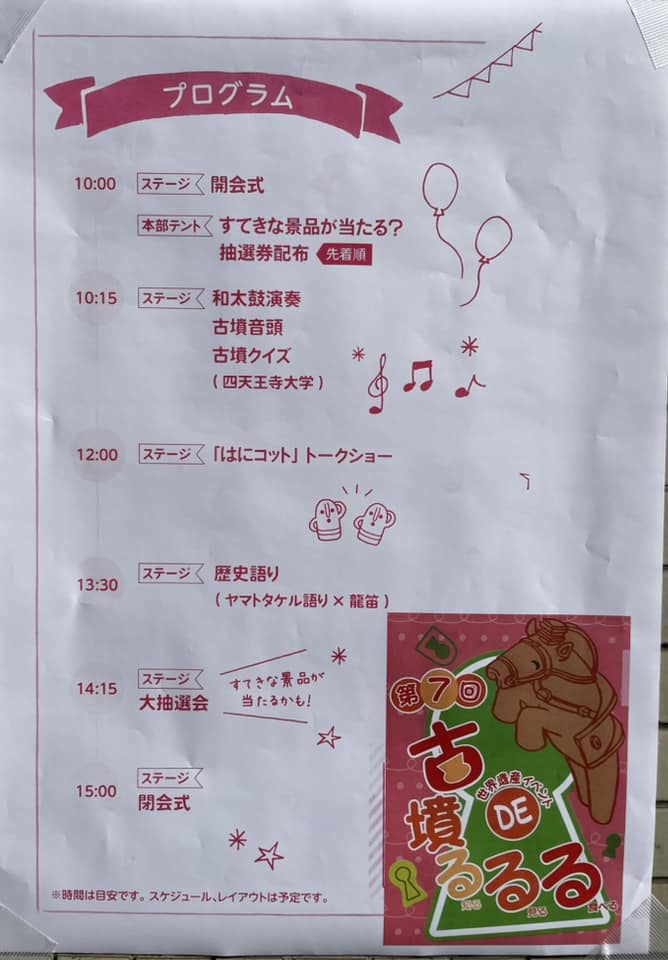 プログラム
10:00 ステージ 開会式
本部テント すてきな景品が当たる?
抽選券配布 先着順
10:15 ステージ 和太鼓演奏
古墳音頭
古墳クイズ
(四天王寺大学)
12:00 ステージ 「はにコット」トークショー
13:30 ステージ 歴史語り
(ヤマトタケル語り×龍笛)
14:15 ステージ
大抽選会
すてきな景品が
当たるかも!
15:00 ステージ
閉会式
※時間は目安です。スケジュール、レイアウトは予定です。
第7回
古墳
世界遺産イベント
DE
るるる
知る
見る
食べる